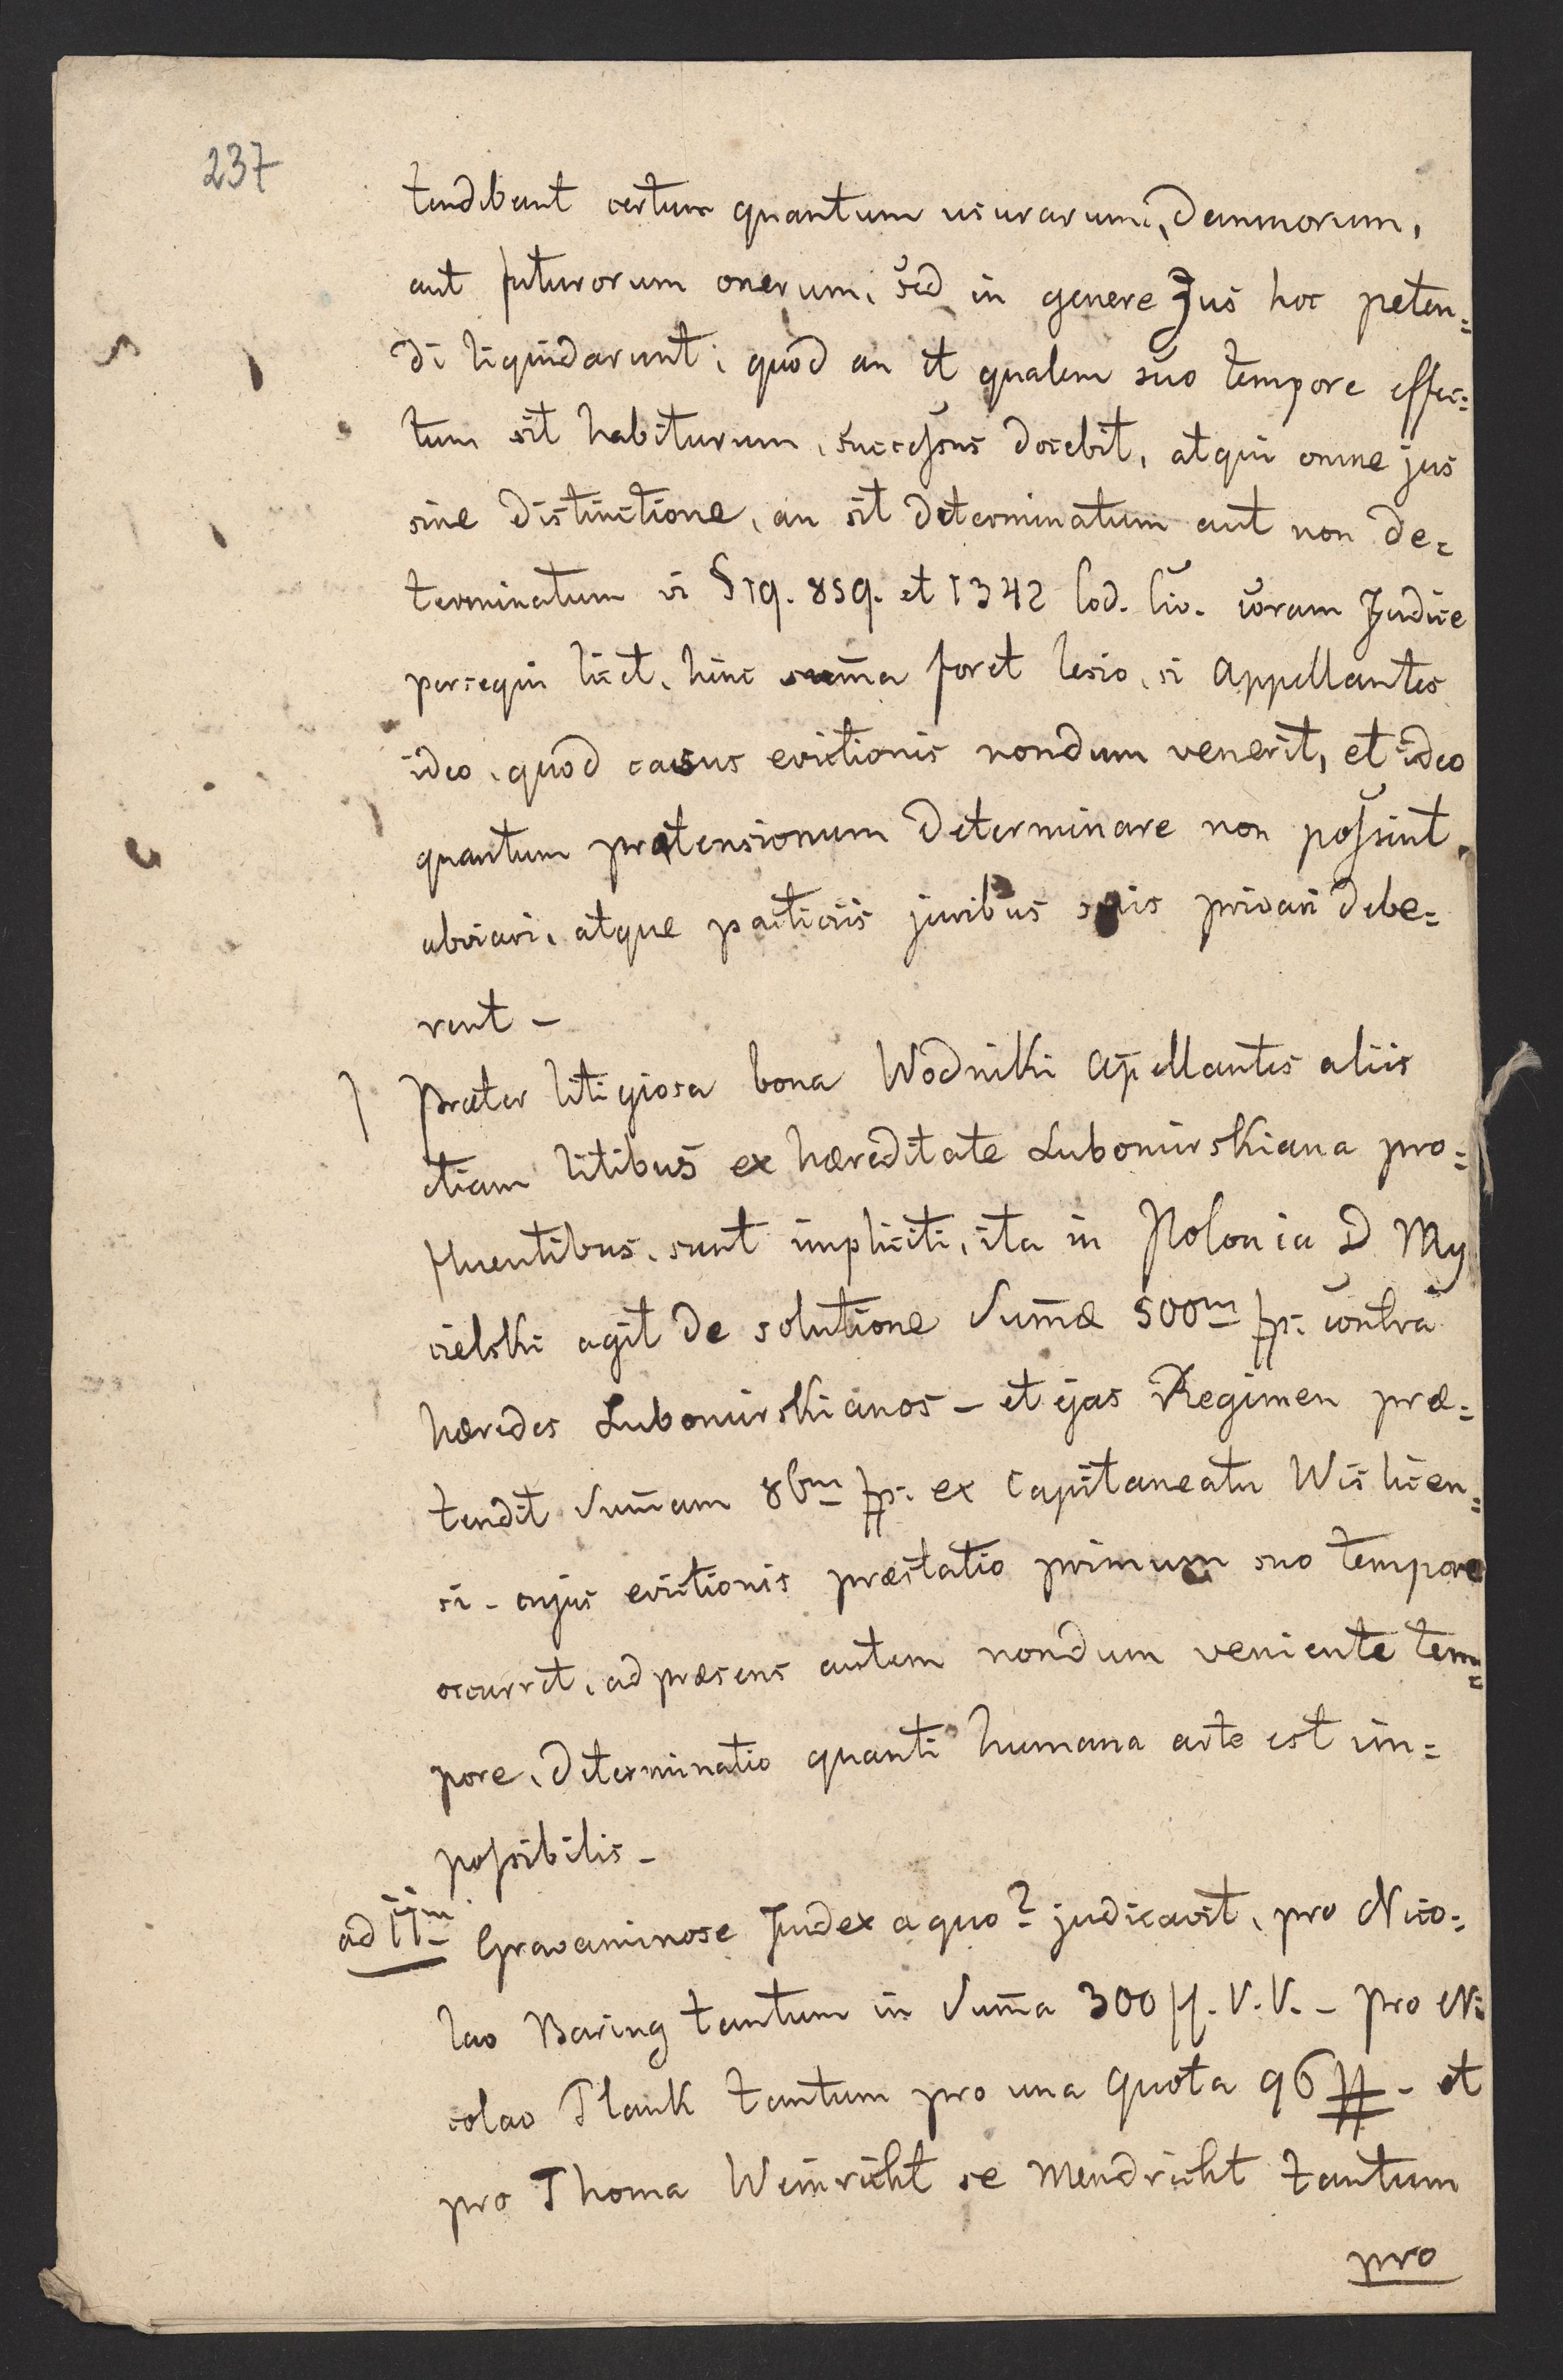 237
tendebant certum quantum usurarum, damnorum,
aut futurorum onerum, sed in genere Jus hoc peten=
di liquidarunt; quod an et qualem suo tempore effec=
tum sit habiturum, successus docebit, atqui omne jus
sine distinctione, an sit determinatum aut non de=
terminatum vi §19. 859. et 1342 Cod. Civ. coram Judice
persequi licet, hinc summa foret lesio, si Appellantes
ideo, quod casus evictionis nondum venerit, et ideo
quantum prætensionum determinare non possint,
abviari, atque pactitiis juribus suis privari debe=
rent –
Præter litigiosa bona Wodniki Appellantes aliis
etiam litibus ex hæreditate Lubomirskiana pro=
fluentibus, sunt impliciti, ita in Polonia D My
cielski agit de solutione Summæ 500m fp. contra
hæredes Lubomirskianos – et ejas Regimen præ=
tendit Summam 86m fp. ex Capitaneatu Wislicen=
si – cujus evictionis præstatio primum suo tempore
occurret, ad præsens autem nondum veniente tem=
pore, determinatio quanti humana arte est im=
possibilis –
ad IIm Gravaminose Judex a quo judicavit, pro Nico=
lao Baring tantum in Summa 300 f. V.V. – pro Ni
colao Plank tantum pro una quota 96 # – et
pro Thoma Weinricht se Mendricht tantum
pro